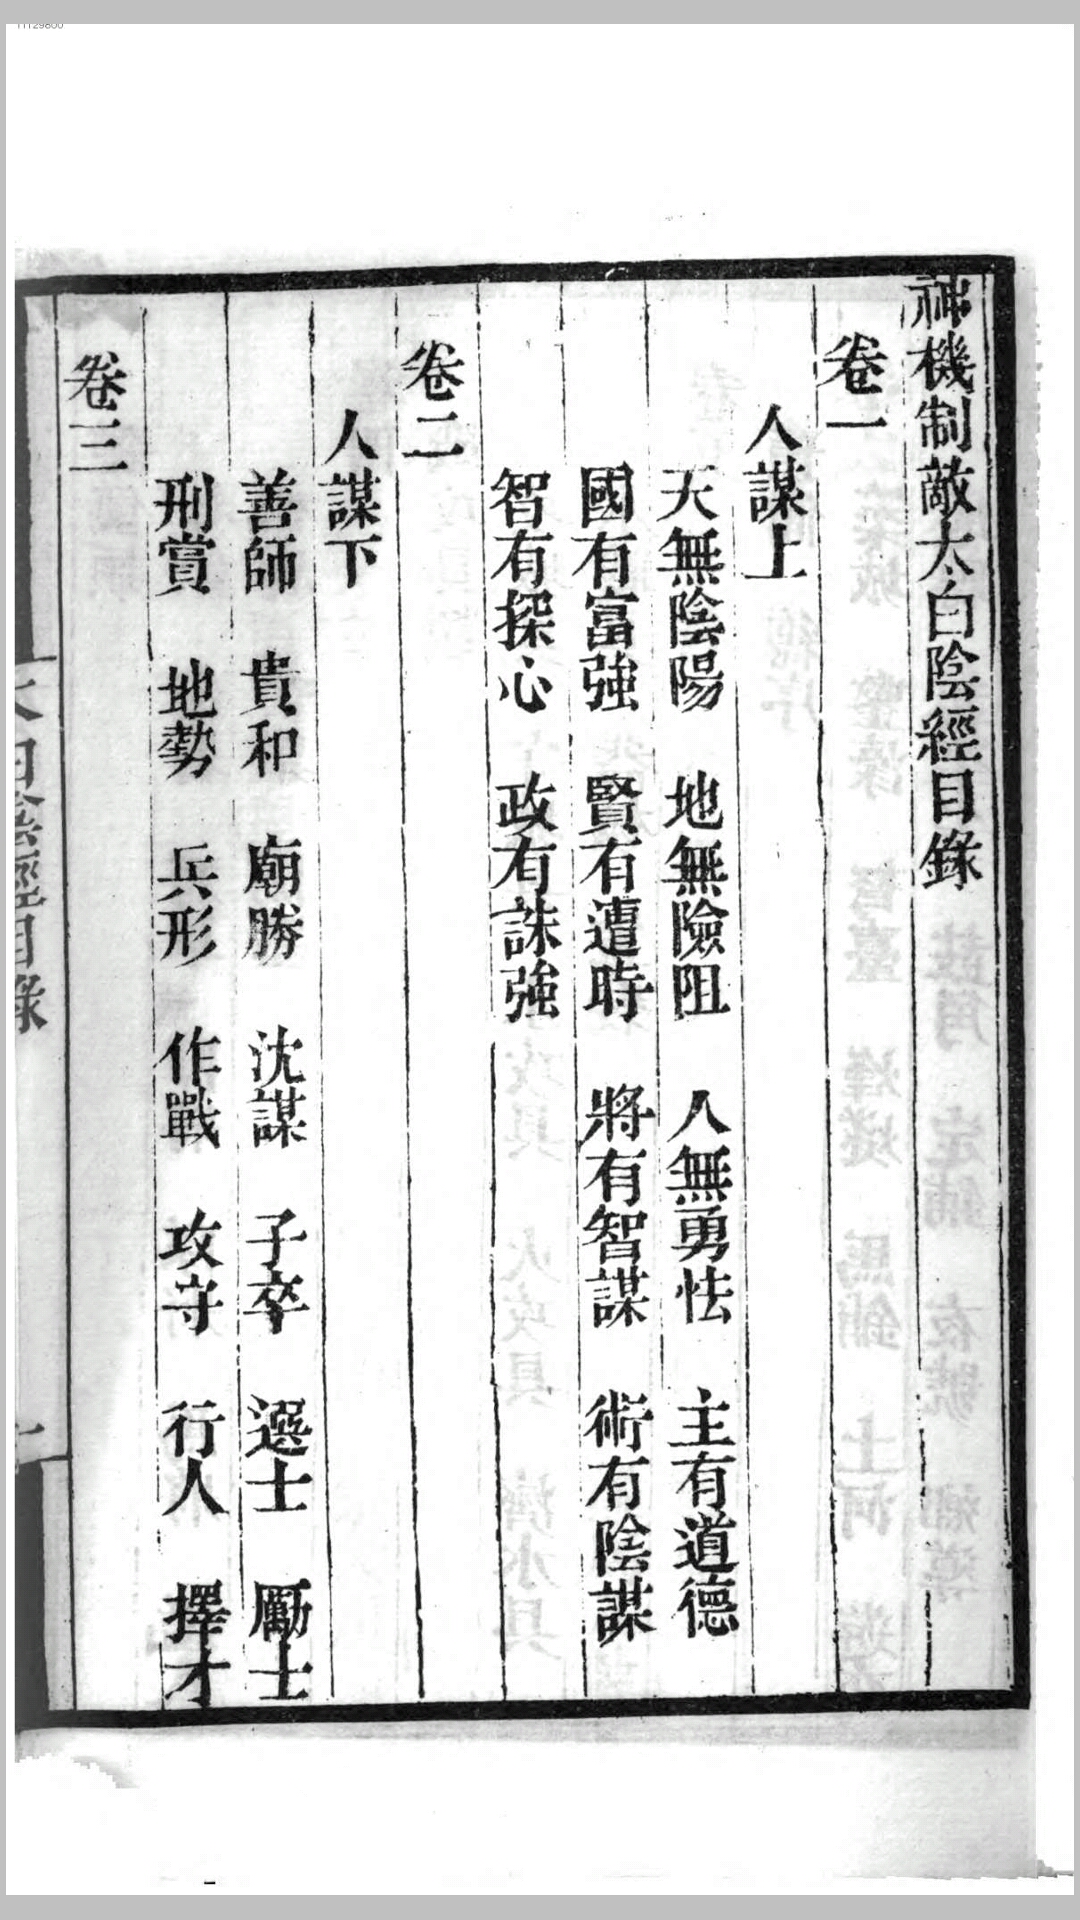 神機制敵太白陰經目錄
卷一
人謀上
天無陰陽 地無險阻 人無勇怯 主有道德
國有富強 賢有遭時 將有智謀 術有陰謀
智有探心 政有誅強
卷二
人謀下
善師 貴和 廟勝 沈謀 子卒 選士 勵士
刑賞 地勢 兵形 作戰 攻守 行人 擇才
卷三
太白陰經目錄
一